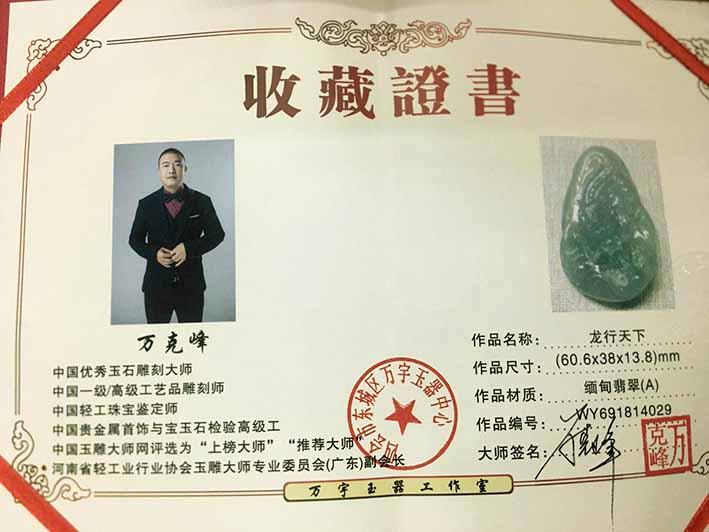 收藏證書
万克峰
中国优秀玉石雕刻大师
中国一级/高级工艺品雕刻师
中国轻工珠宝鉴定师
中国贵金属首饰与宝玉石检验高级工
中国玉雕大师网评选为“上榜大师”“推荐大师”
河南省轻工业行业协会玉雕大师专业委员会(广东)副会长
作品名称: 龙行天下
作品尺寸: (60.6x38x13.8)mm
作品材质: 缅甸翡翠(A)
作品编号: WY691814029
大师签名:
万克峰
四会市东城区万宇玉器中心
万宇玉器工作室